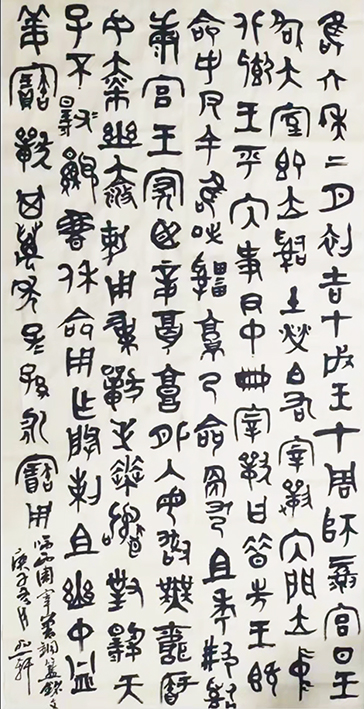 隹六年二月初吉甲戌王才周師彔宮旦王
各大室即立司土榮白右宰獸內門立中廷
北鄉王乎內史尹中冊命宰獸曰昔先王既
命女今余隹或申就乃命更乃且考事
康宮王家臣妾庸外入毋敢無聞智
易女赤巿幽亢攸勒用事獸拜稽首敢對揚天
子不顯魯休命用乍朕剌且幽中益
姜寶簋獸其萬年子孫永寶用
西周宰獸簋銘文
庚子冬月軒